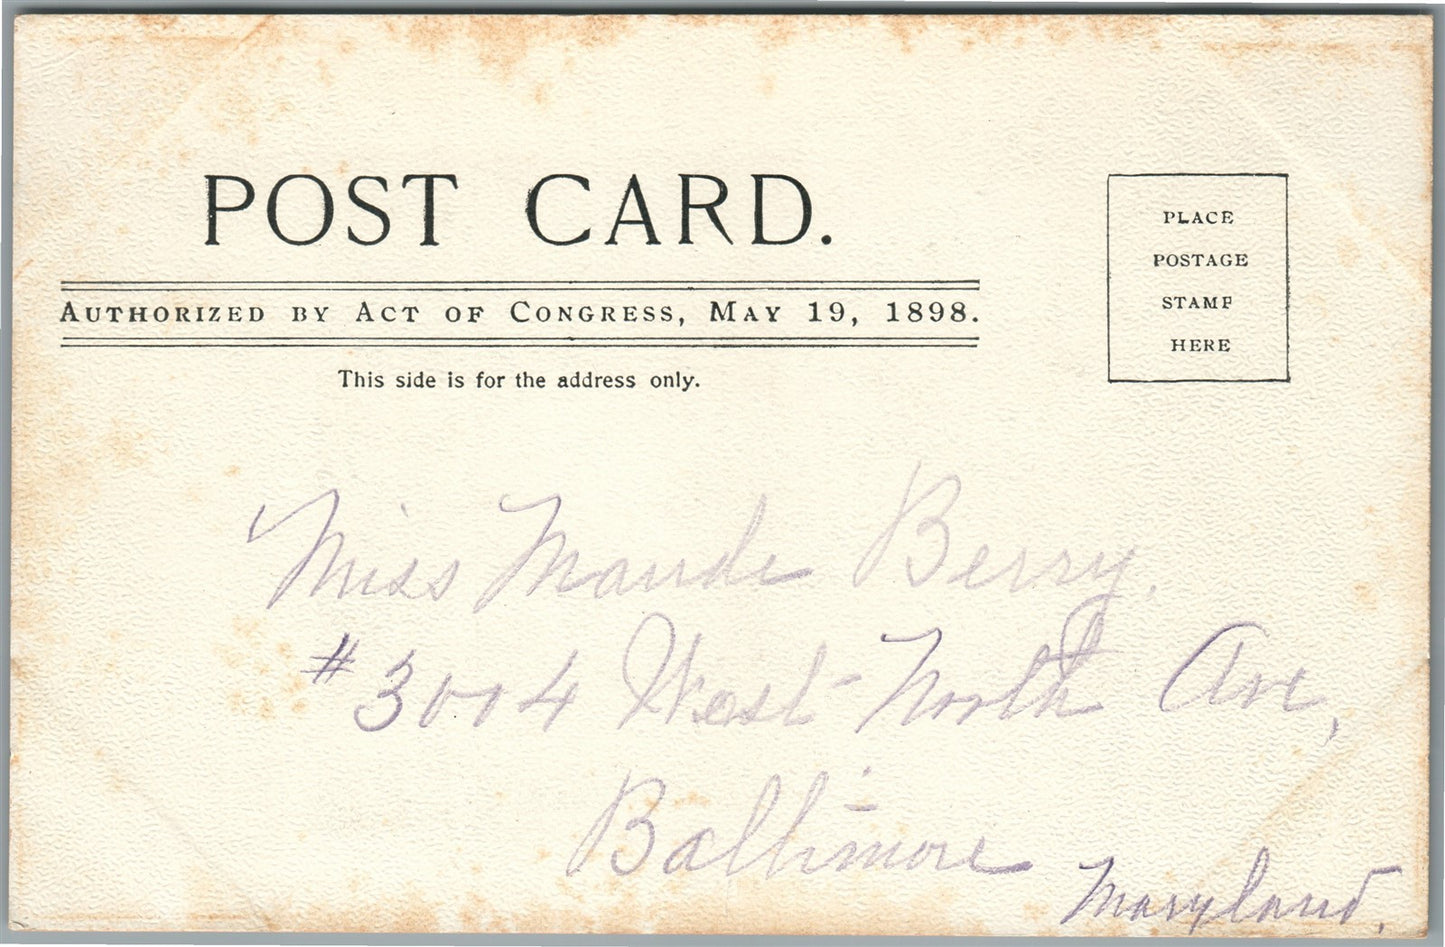 POST CARD.
AUTHORIZED BY ACT OF CONGRESS, MAY 19, 1898.
This side is for the address only.
PLACE
POSTAGE
STAMP
HERE
Miss Maude Berry.
#3004 West North Ave,
Baltimore
Maryland.